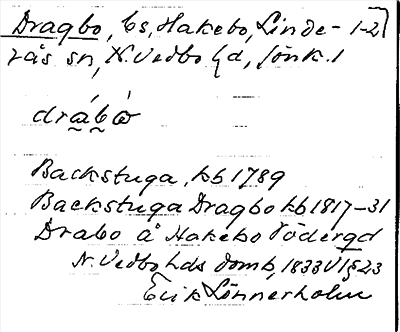 Dragbo, bs, Hakebo, Linde- 1-2
rås sn, N. Vedbo hd, Jönk. l
dra̰b̰ω
Backstuga, kb 1789
Backstuga Dragbo kb 1817-31
Drabo å Hakebo Södergd
N. Vedbo hds domb, 1833 VI § 23
Erik Lönnerholm